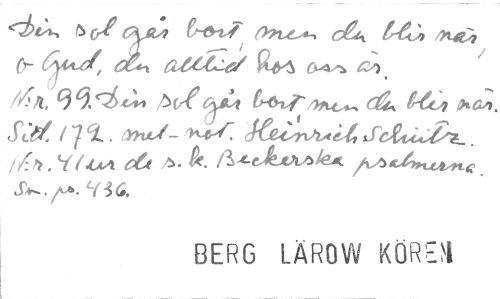 Din sol går bort, men du blir när,
o Gud, du alltid hos oss är.
N:r. 99. Din sol går bort, men du blir när.
Sid. 172. mel-not. Heinrich Schütz.
N:r. 41 ur de s.k. Beckerska psalmerna.
Sv. ps. 436.
BERG LÄROW KÖREN